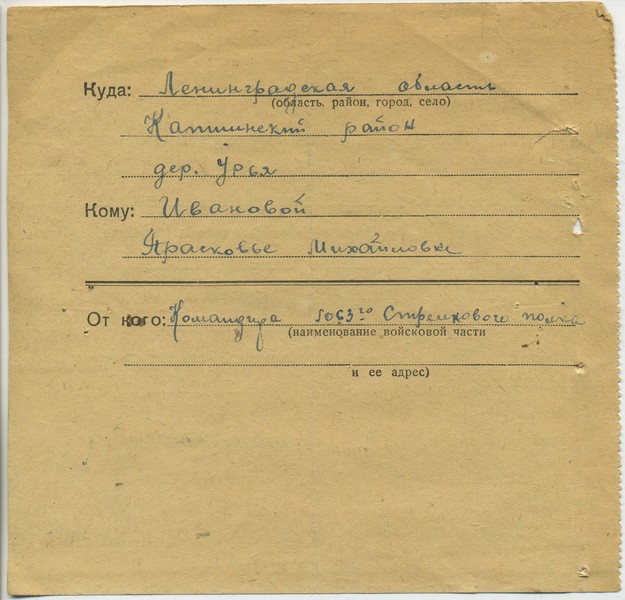 Куда: Ленинградская область
(область, район, город, село)
Капшинский район
дер. Урья
Кому: Ивановой
Прасковье Михайловне
От кого: Командира 1063го Стрелкового полка
(наименование войсковой части
и ее адрес)